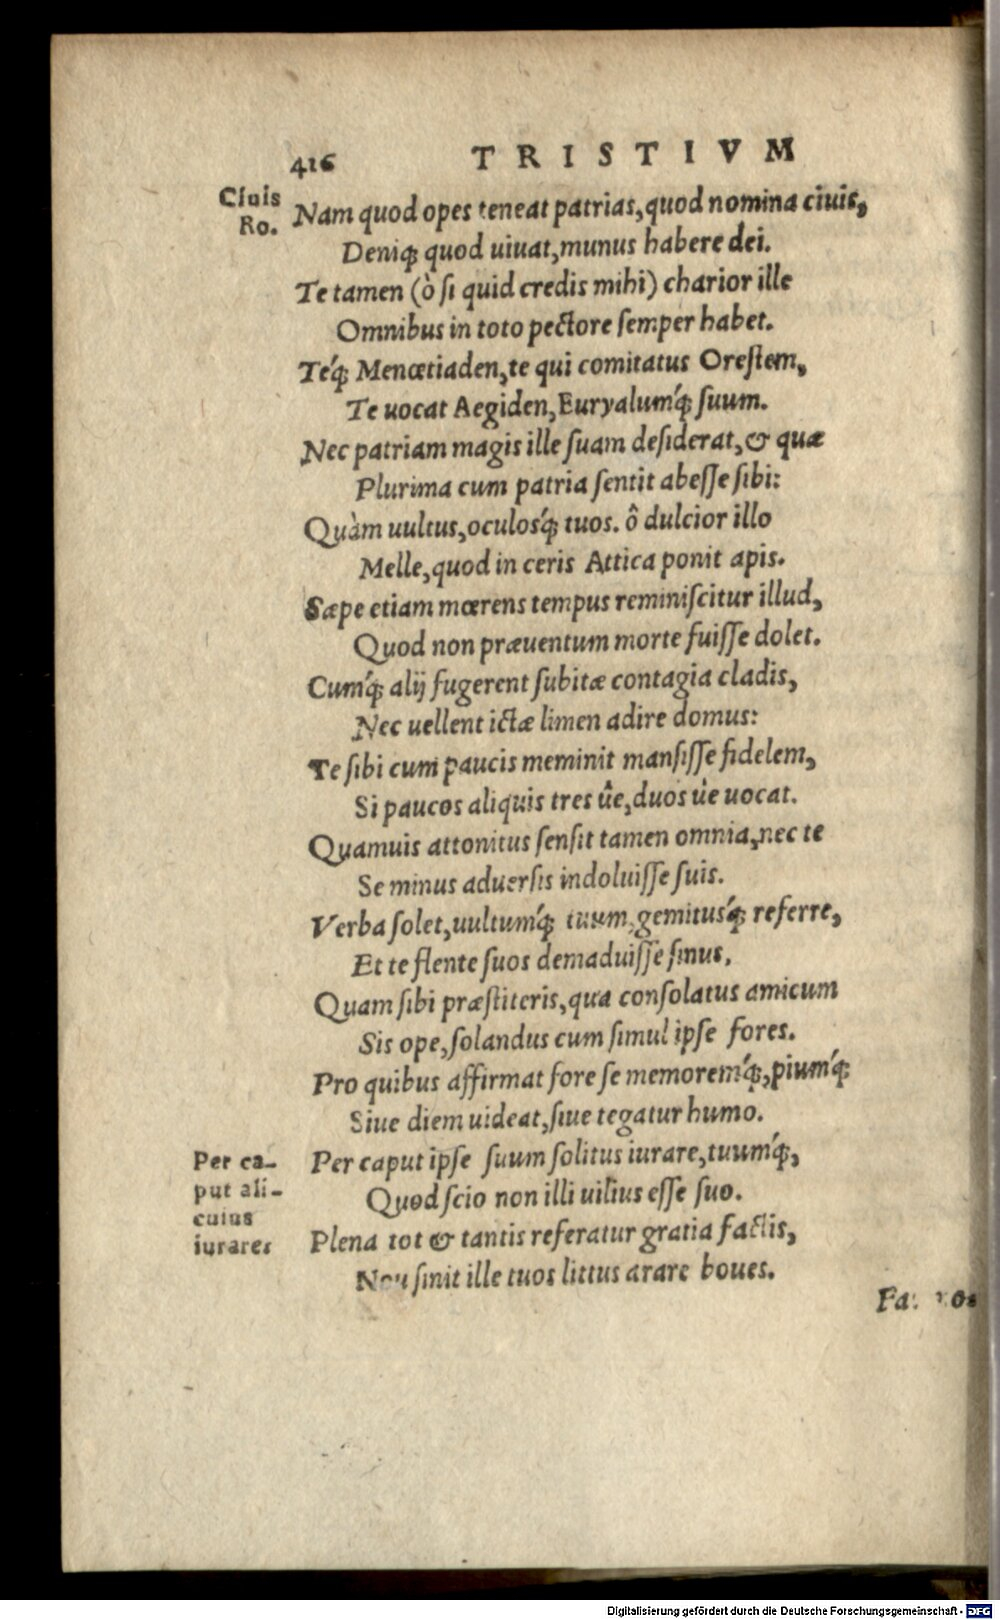 416 TRISTIVM
Ciuis
Ro.
Nam quod opes teneat patrias, quod nomina ciuis,
Deniq; quod uiuat, munus habere dei.
Te tamen (ò si quid credis mihi) charior ille
Omnibus in toto pectore semper habet.
Te´q; Menœtiaden, te qui comitatus Orestem,
Te uocat Aegiden, Euryalum´q; suum.
Nec patriam magis ille suam desiderat, & quæ
Plurima cum patria sentit abesse sibi:
Quàm uultus, oculos´q; tuos. ô dulcior illo
Melle, quod in ceris Attica ponit apis.
Sæpe etiam mœrens tempus reminiscitur illud,
Quod non præuentum morte fuisse dolet.
Cum´q; alij fugerent subitæ contagia cladis,
Nec uellent ictæ limen adire domus:
Te sibi cum paucis meminit mansisse fidelem,
Si paucos aliquis tres ûe, duos ûe uocat.
Quamuis attonitus sensit tamen omnia, nec te
Se minus aduersis indoluisse suis.
Verba solet, uultum´q; tuum, gemitus´q; referre,
Et te flente suos demaduisse sinus.
Quam sibi præstiteris, qua consolatus amicum
Sis ope, solandus cum simul ipse fores.
Pro quibus affirmat fore se memorem´q;, pium´q;
Siue diem uideat, siue tegatur humo.
Per ca-
put ali-
cuius
iurares
Per caput ipse suum solitus iurare, tuum´q;,
Quod scio non illi uilius esse suo.
Plena tot & tantis referatur gratia factis,
Non sinit ille tuos littus arare boues.
Digitalisierung gefördert durch die Deutsche Forschungsgemeinschaft - DFG